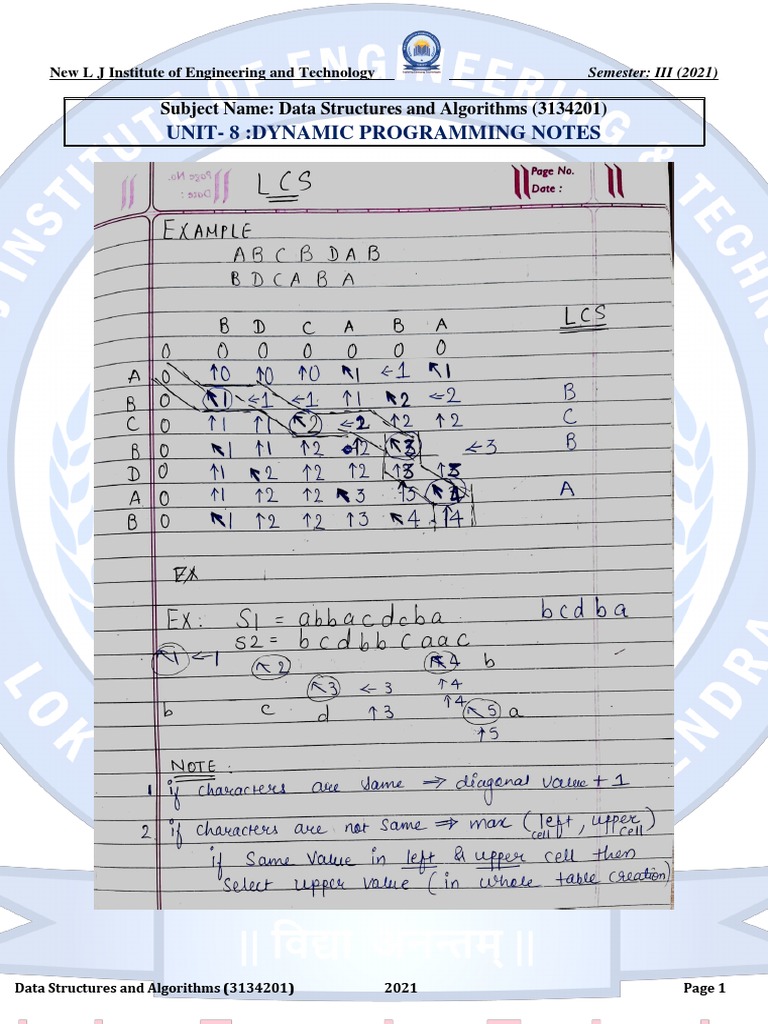 New L J Institute of Engineering and Technology Semester: III (2021)
Subject Name: Data Structures and Algorithms (3134201)
UNIT- 8 :DYNAMIC PROGRAMMING NOTES
Page No.
Date :
LCS
EXAMPLE
A B C B D A B
B D C A B A
LCS
B D C A B A
0 0 0 0 0 0 0
A 0 ↑0 ↑0 ↑0 ↖1 ←1 ↖1
B 0 ↖1 ←1 ←1 ↑1 ↖2 ←2 B
C 0 ↑1 ↑1 ↖2 ←2 ↑2 ↑2 C
B 0 ↖1 ↑1 ↑2 ↑2 ↖3 ←3 B
D 0 ↑1 ↖2 ↑2 ↑2 ↑3 ↑3
A 0 ↑1 ↑2 ↑2 ↖3 ↑3 ↖4 A
B 0 ↖1 ↑2 ↑2 ↑3 ↖4 ↑4
EX
EX: S1 = abbacdcba bcdba
S2 = bcdbbcaac
↖1 ←1 ↖2 ↖4 b
↖3 ←3 ↑4
↑4
b c d ↑3 ↖5 a
↑5
NOTE:
1. if characters are same ⇒ diagonal value + 1
2. if characters are not same ⇒ max (left cell, upper cell)
if same value in left & upper cell then
select upper value (in whole table creation)
|| विद्या अनन्तम् ||
Data Structures and Algorithms (3134201) 2021 Page 1